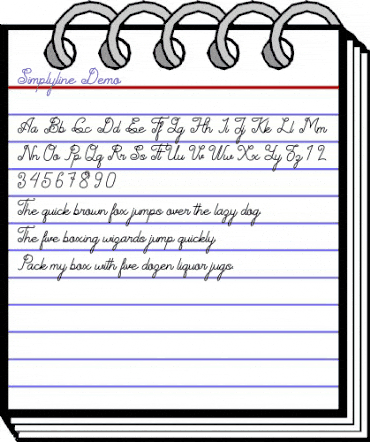 Simplyline Demo
Aa Bb Cc Dd Ee Ff Gg Hh Ii Jj Kk Ll Mm
Nn Oo Pp Qq Rr Ss Tt Uu Vv Ww Xx Yy Zz 1 2
3 4 5 6 7 8 9 0
The quick brown fox jumps over the lazy dog.
The five boxing wizards jump quickly.
Pack my box with five dozen liquor jugs.